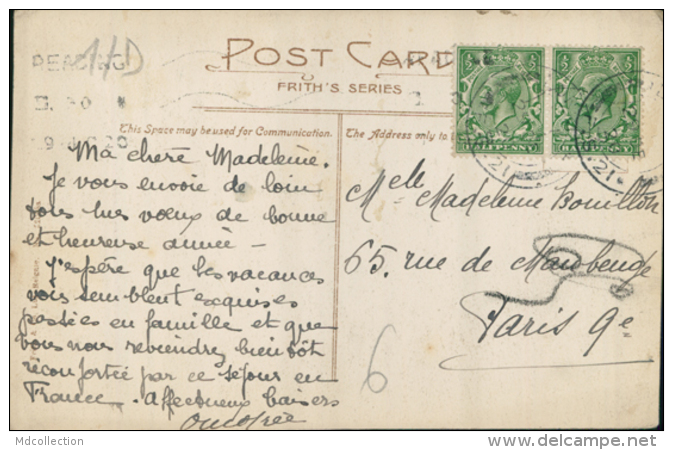 1/D
READING
POST CARD
FRITH'S SERIES
This Space may be used for Communication.
The Address only to
HALFPENNY
Ma chère Madeleine.
Je vous envoie de loin
tous mes vœux de bonne
et heureuse année —
J'espère que les vacances
vous semblent exquises
passées en famille et que
vous nous reviendrez bientôt
réconfortée par ce séjour en
France. Affectueux baisers
Melle Madeleine Bouillon
65, rue de Maubeuge
Paris 9e
6
Mdcollection
www.delcampe.net